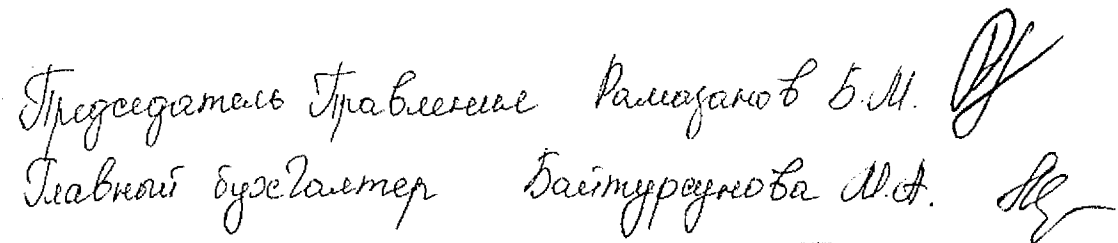 Председатель Правление Рамазанов Б.М.
Главный бухгалтер Байтурсунова М.А.